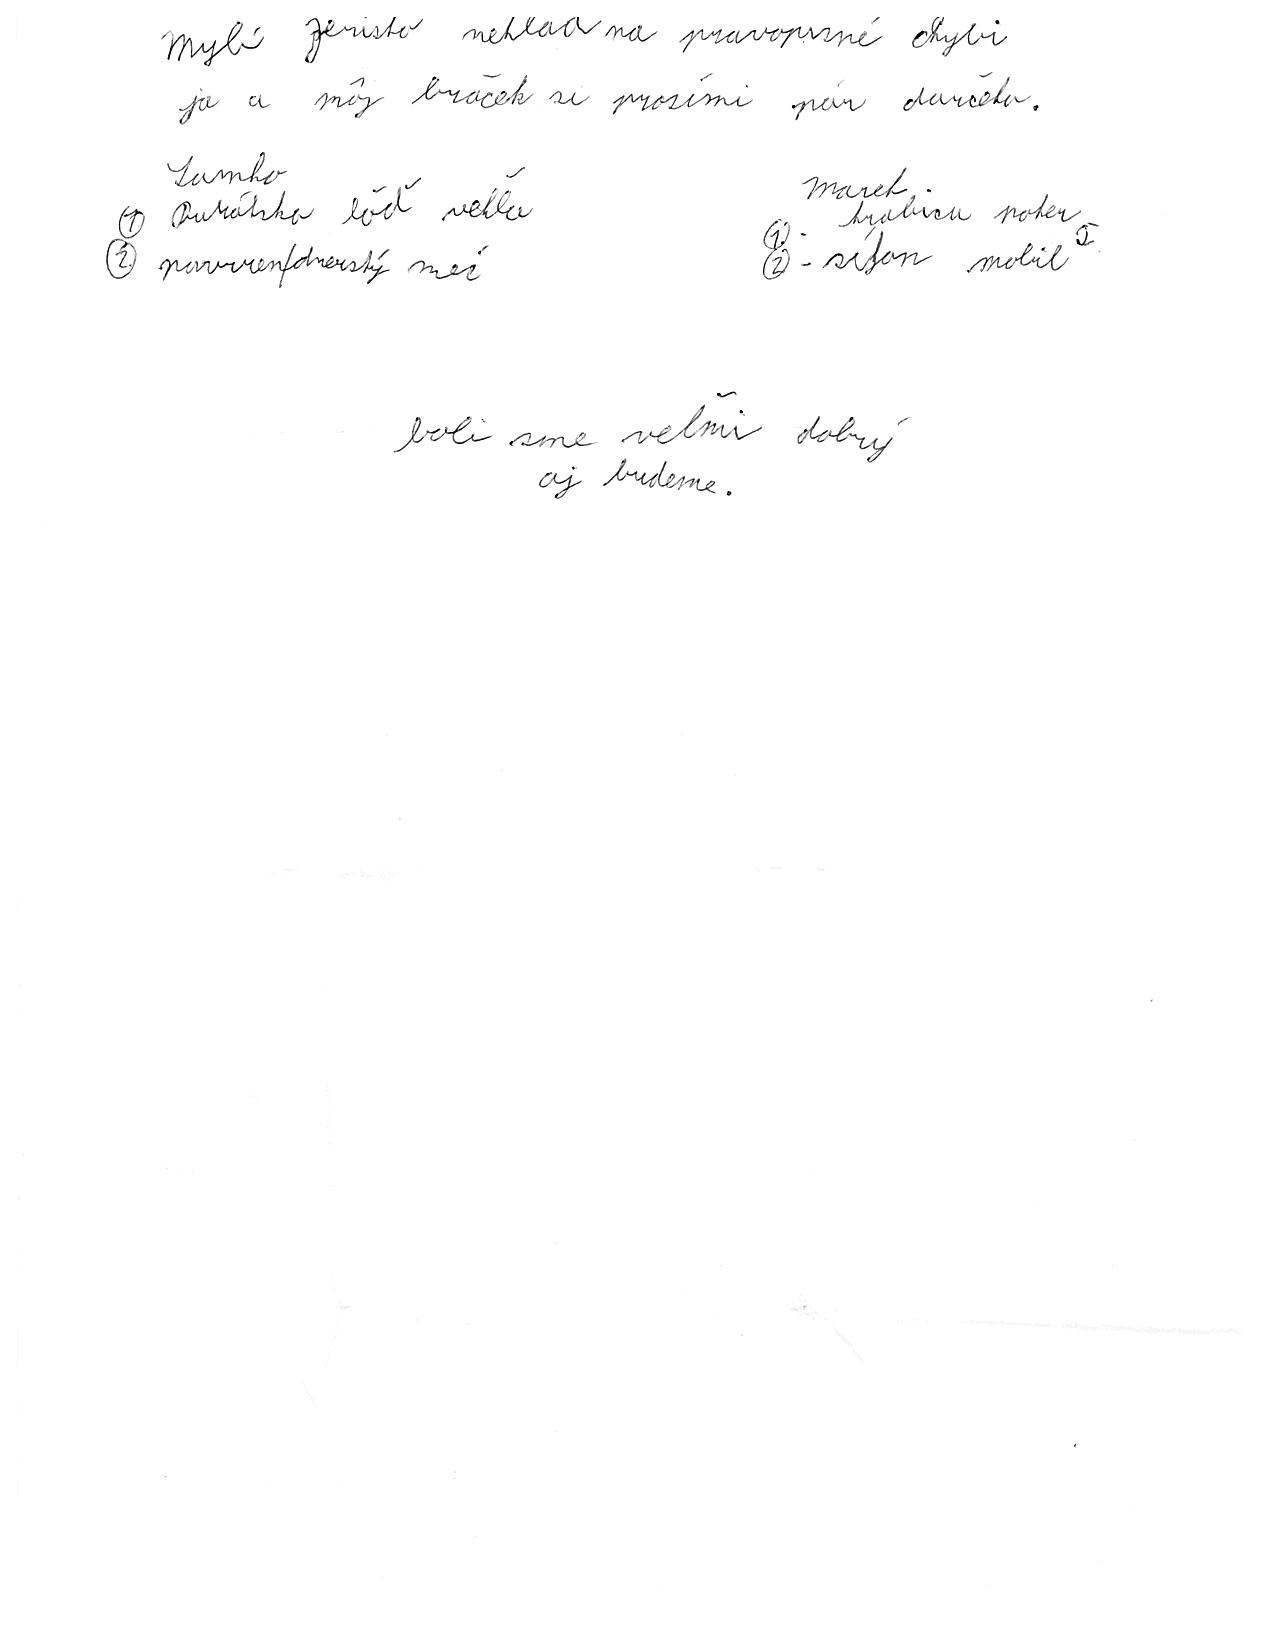 Mylí Jeriško nehlaď na pravopisné chybi
ja a môj bráček si prosími pár darčeku.
Samko
① Pirátska lóď veklá
② meč
Marek
① - hrabicu poker
② - sífon mobil
boli sme velmi dobrý
aj budeme.